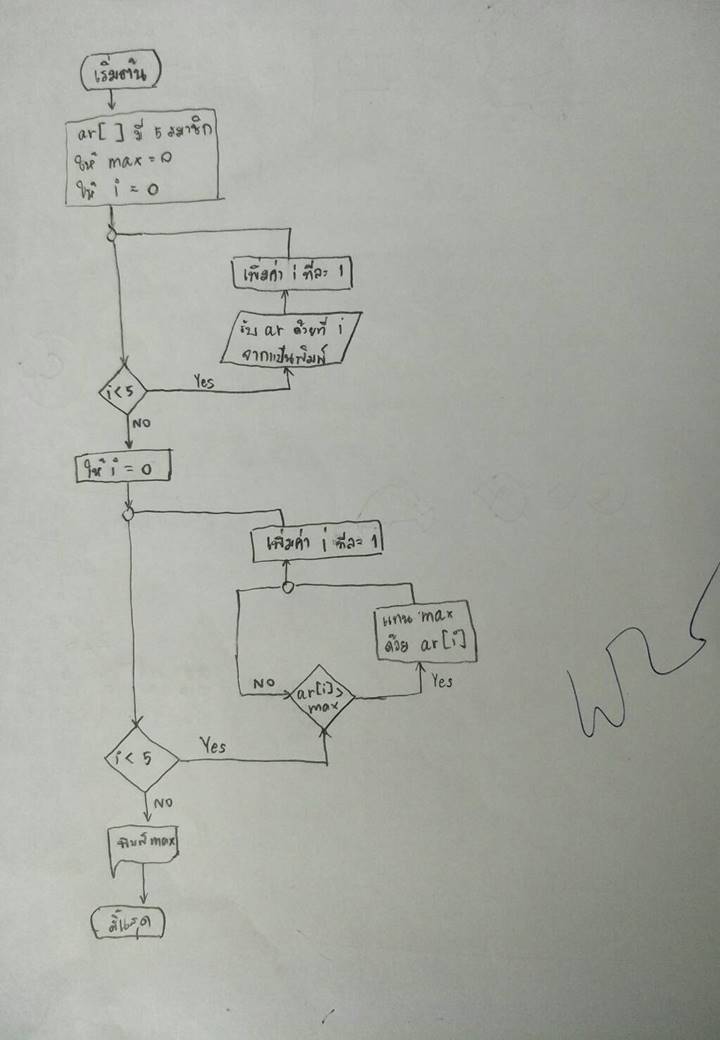 เริ่มต้น
ar[ ] มี 5 สมาชิก
ให้ max = 0
ให้ i = 0
เพิ่มค่า i ทีละ 1
รับ ar ตัวที่ i
จากแป้นพิมพ์
i < 5
Yes
NO
ให้ i = 0
เพิ่มค่า i ทีละ 1
แทน max
ด้วย ar[i]
NO
ar[i] >
max
Yes
i < 5
Yes
NO
พิมพ์ max
สิ้นสุด